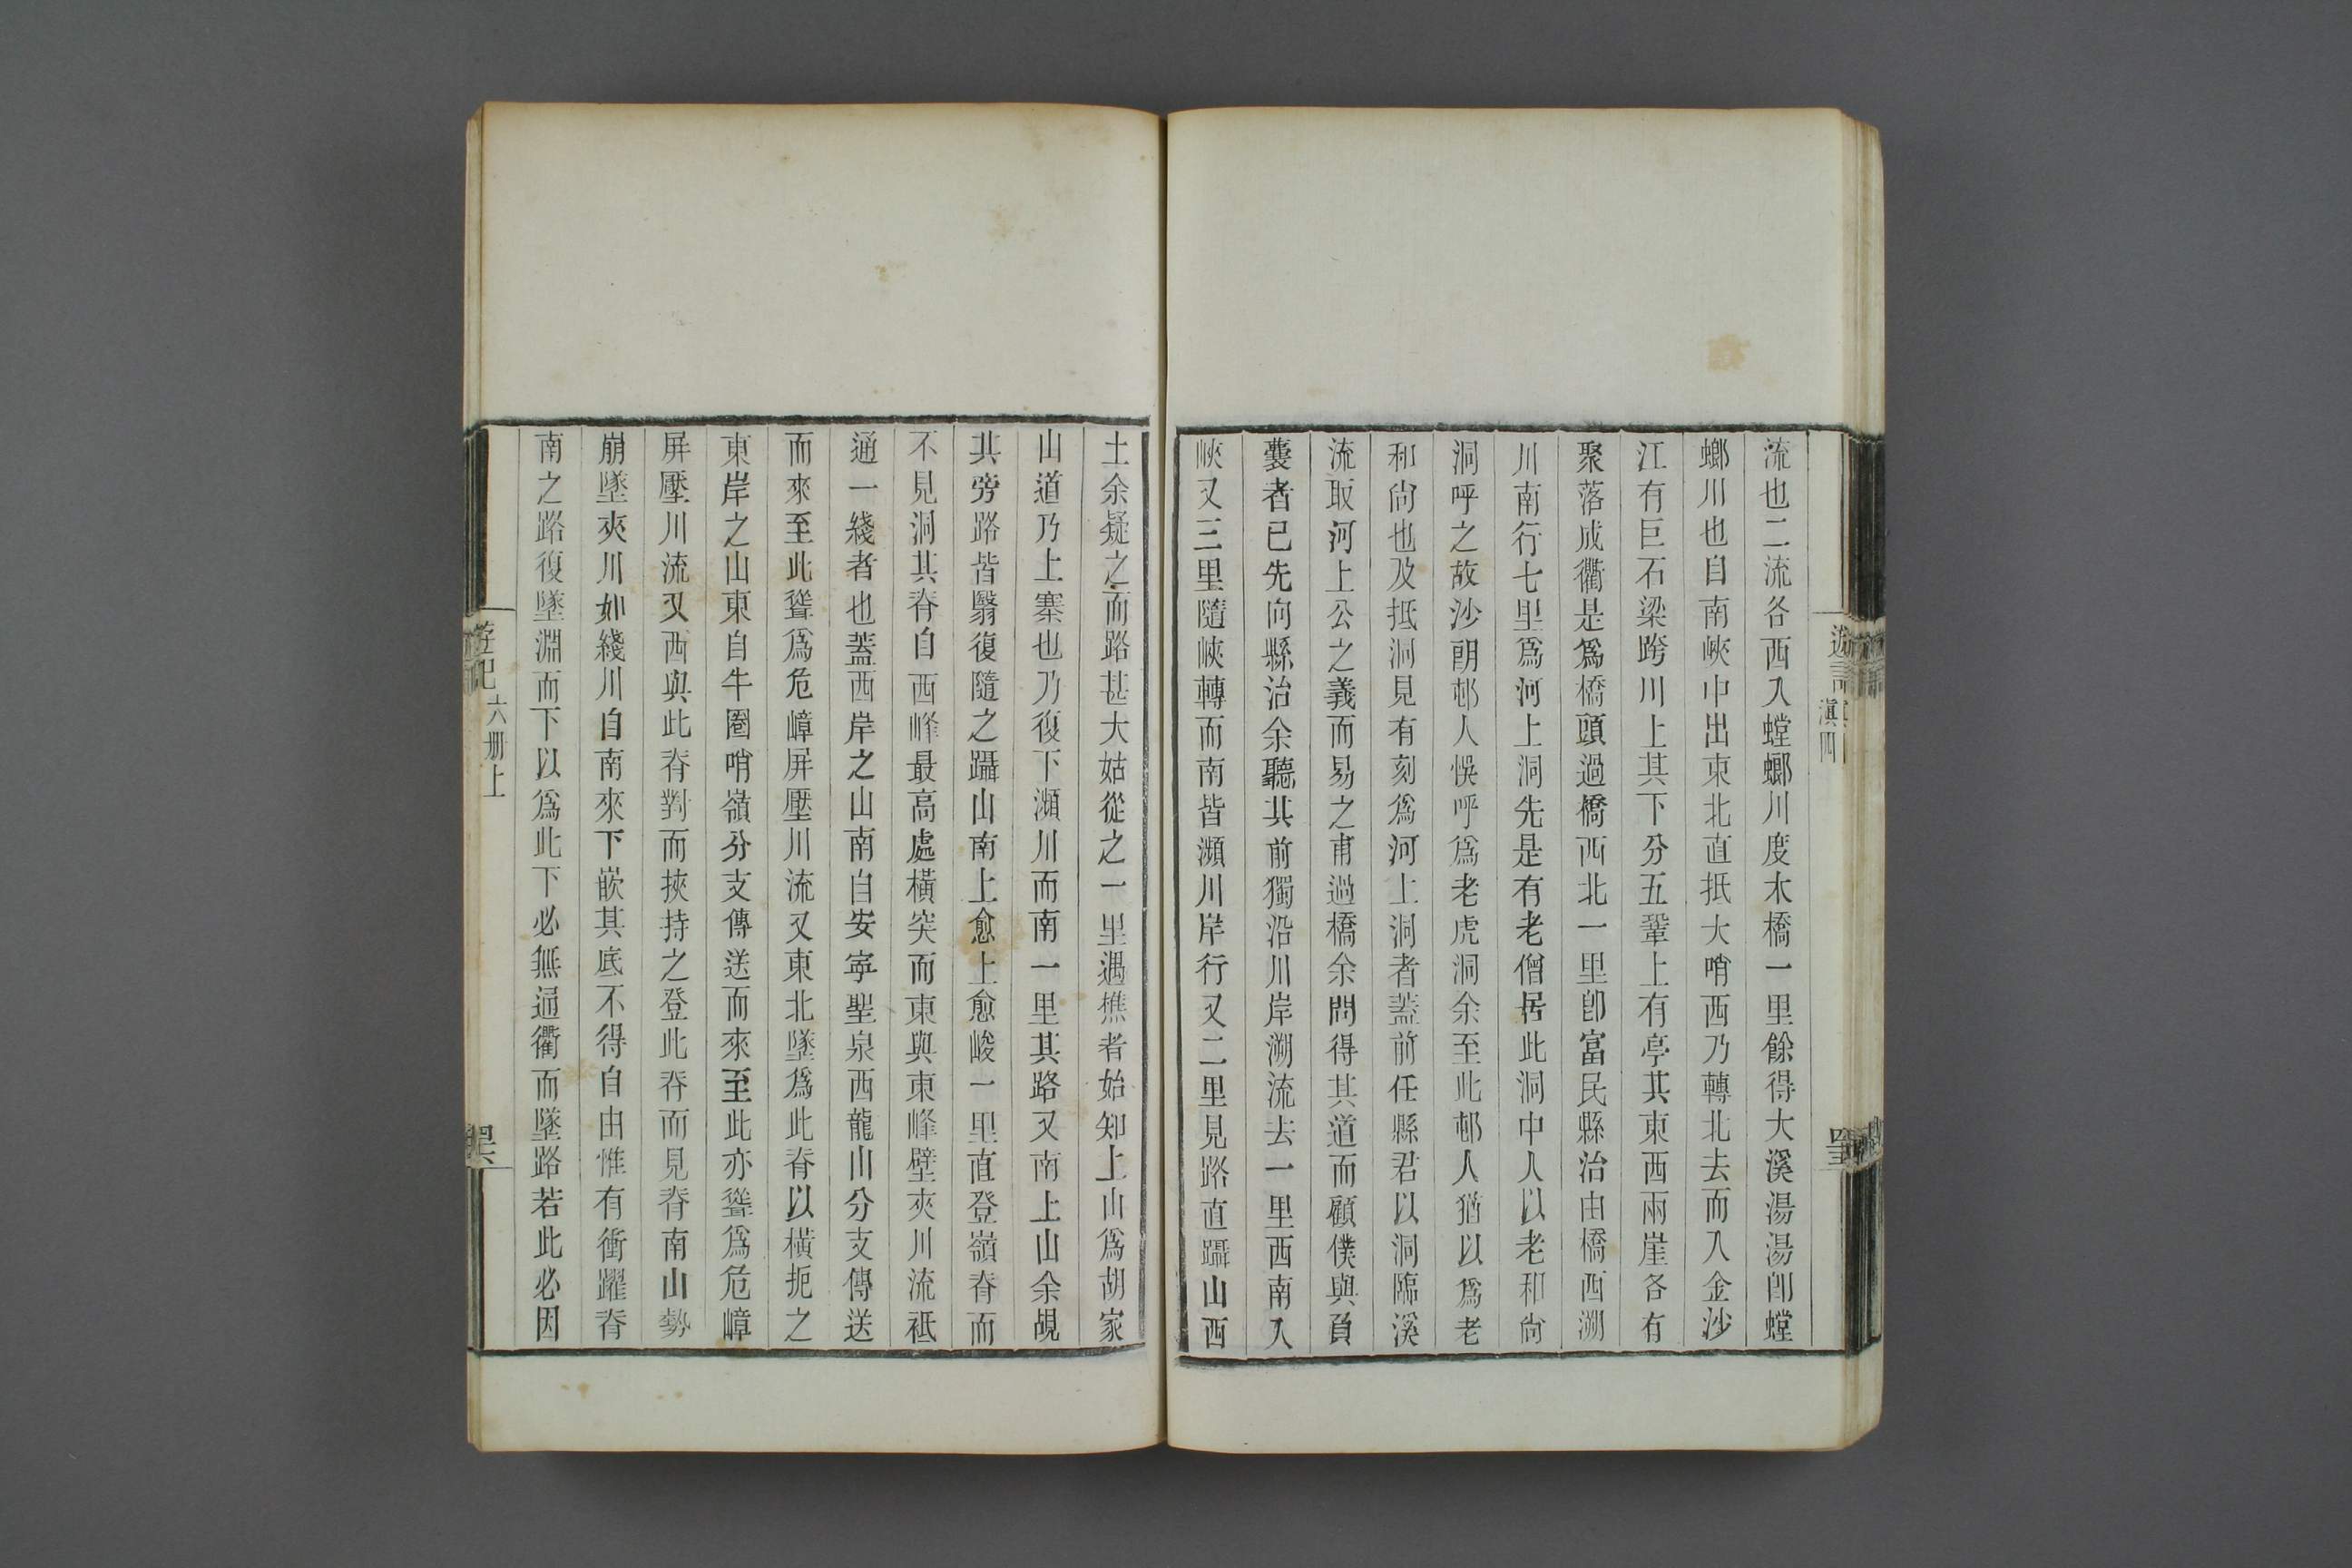 流也二流各西入螳螂川度木橋一里餘得大溪湯湯卽螳
螂川也自南峽中出東北直抵大哨西乃轉北去而入金沙
江有巨石梁跨川上其下分五鞏上有亭其東西兩崖各有
聚落成衢是爲橋頭過橋西北一里卽富民縣治由橋西溯
川南行七里爲河上洞先是有老僧居此洞中人以老和尙
洞呼之故沙朗邨人悞呼爲老虎洞余至此邨人猶以爲老
和尙也及抵洞見有刻爲河上洞者蓋前任縣君以洞臨溪
流取河上公之義而易之甫過橋余問得其道而顧僕與負
囊者已先向縣治余聽其前獨沿川岸溯流去一里西南入
峽又三里隨峽轉而南皆瀕川岸行又二里見路直躡山西
土余疑之而路甚大姑從之一里遇樵者始知上山爲胡家
山道乃上寨也乃復下瀕川而南一里其路又南上山余覘
其旁路皆翳復隨之躡山南上愈上愈峻一里直登嶺脊而
不見洞其脊自西峰最高處橫突而東與東峰壁夾川流祗
通一綫者也蓋西岸之山南自安寧聖泉西龍山分支傳送
而來至此聳爲危嶂屏壓川流又東北墜爲此脊以橫扼之
東岸之山東自牛圈哨嶺分支傳送而來至此亦聳爲危嶂
屏壓川流又西與此脊對而挾持之登此脊而見脊南山勢
崩墜夾川如綫川自南來下嵌其底不得自由惟有衝躍脊
南之路復墜淵而下以爲此下必無通衢而墜路若此必因
遊記
六册上
滇四